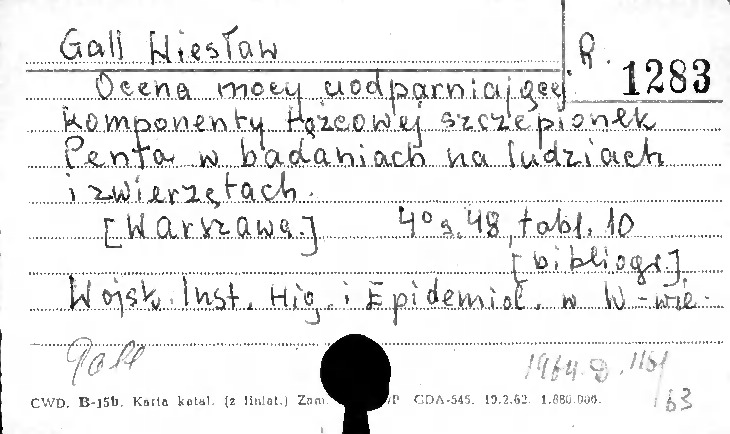 Gall Wiesław
R. 1283
Ocena mocy uodparniającej
komponenty tężcowej szczepionek
Penta w badaniach na ludziach
i zwierzętach.
[Warszawa.] 4° s. 48, tabl. 10
[bibliogr.]
Wojsk. Inst. Hig. i Epidemiol. w W-wie.
Gall
1964.D.1161/63
CWD. B-15b. Karta katal. (z liniat.) Zam. GDA-545. 19.2.62. 1.880.000.